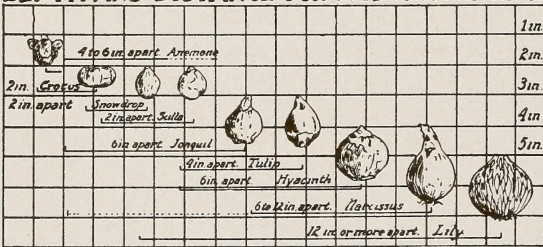 4 to 6 in. apart Anemone
1 in.
2 in.
2 in. Crocus
2 in. apart
3 in.
Snowdrop
2 in. apart. Scilla
4 in
6 in apart Jonquil
5 in.
4 in. apart. Tulip
6 in. apart. Hyacinth
6 to 12 in. apart. Narcissus
12 in. or more apart. Lily